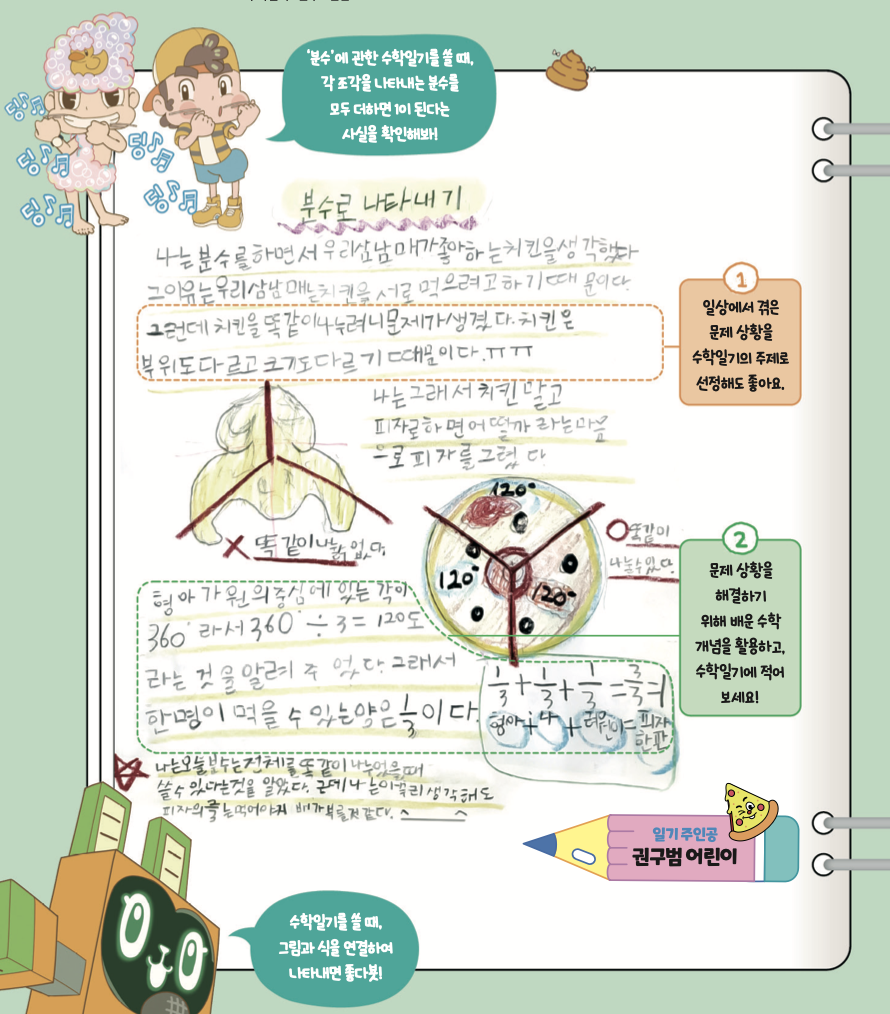 '분수'에 관한 수학일기를 쓸 때,
각 조각을 나타내는 분수를
모두 더하면 1이 된다는
사실을 확인해봐!
딩♪♬
딩♪♬
딩♪♬
딩♪♬
딩♪♬
분수로 나타내기
나는분수를하면서 우리삼남매가좋아하는치킨을생각했다
그이유는우리삼남매는치킨을 서로 먹으려고하기 때문이다.
그런데 치킨을똑같이나누려니문제가생겼다.치킨은
부위도다르고 크기도다르기 때문이다.ㅠㅠ
나는그래서 치킨말고
피자로하면어떨까 라는마음
으로 피자를그렸다
똑같이나눌수 없다.
120°
120°
120°
똑같이
나눌수있다.
1
일상에서 겪은
문제 상황을
수학일기의 주제로
선정해도 좋아요.
형아가원의중심에 있는각이
360°라서 360°÷3=120도
라는 것을알려주었다.그래서
한명이 먹을수 있는양은 1/3이다.
1/3+1/3+1/3=3/3=1
형아+나+ =피자
한판
2
문제 상황을
해결하기
위해 배운 수학
개념을 활용하고,
수학일기에 적어
보세요!
나는오늘분수는전체를똑같이 나누었을때
쓸수있다는것을 알았다. 근데나는 생각해도
피자의 는먹어야지 배가부를것같다. ^___^
일기 주인공
권구범 어린이
수학일기를 쓸 때,
그림과 식을 연결하여
나타내면 좋다봇!